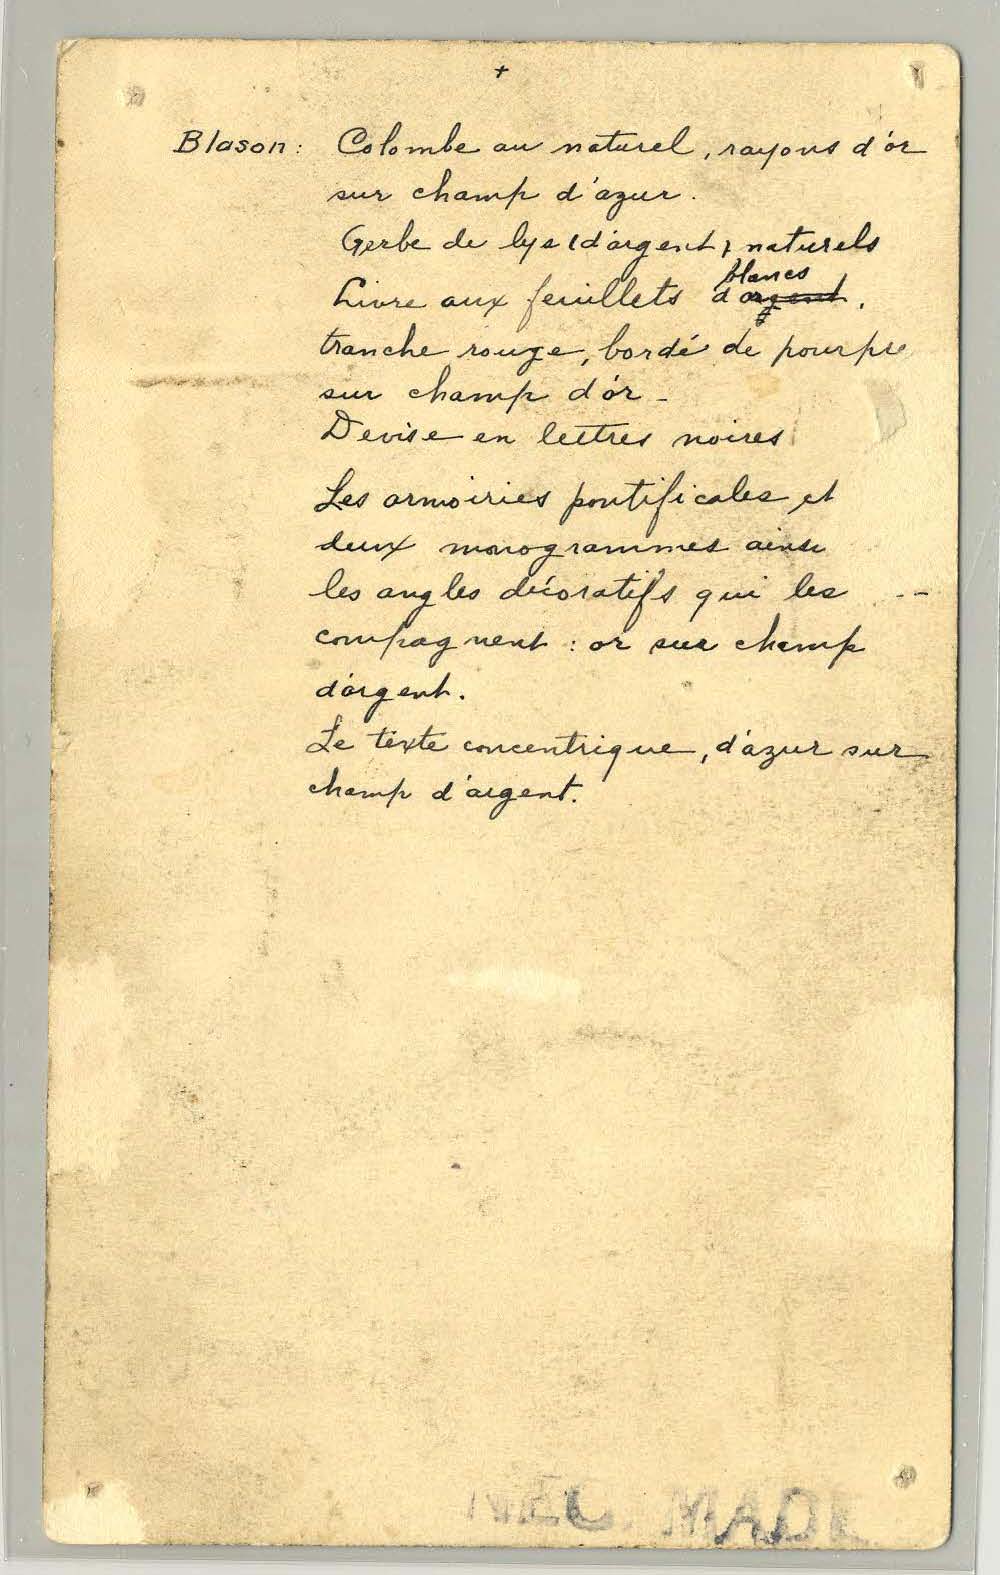 +
Blason: Colombe au naturel, rayons d'or
sur champ d'azur.
Gerbe de lys (d'argent) naturels
blancs
Livre aux feuillets d'argent,
tranche rouge, bordé de pourpre
sur champ d'or -
Devise en lettres noires
Les armoiries pontificales et
deux monogrammes ainsi
les angles décoratifs qui les --
compagnent : or sur champ
d'argent.
Le texte concentrique, d'azur sur
champ d'argent.